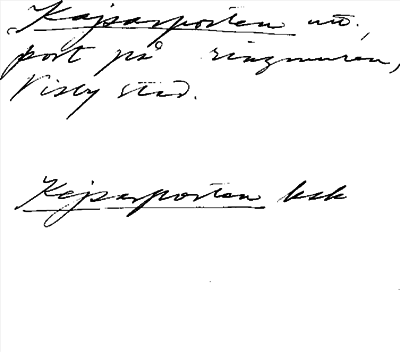 Kajsarporten utt.,
port på ringmuren,
Visby stad.
Kejsarporten bsk